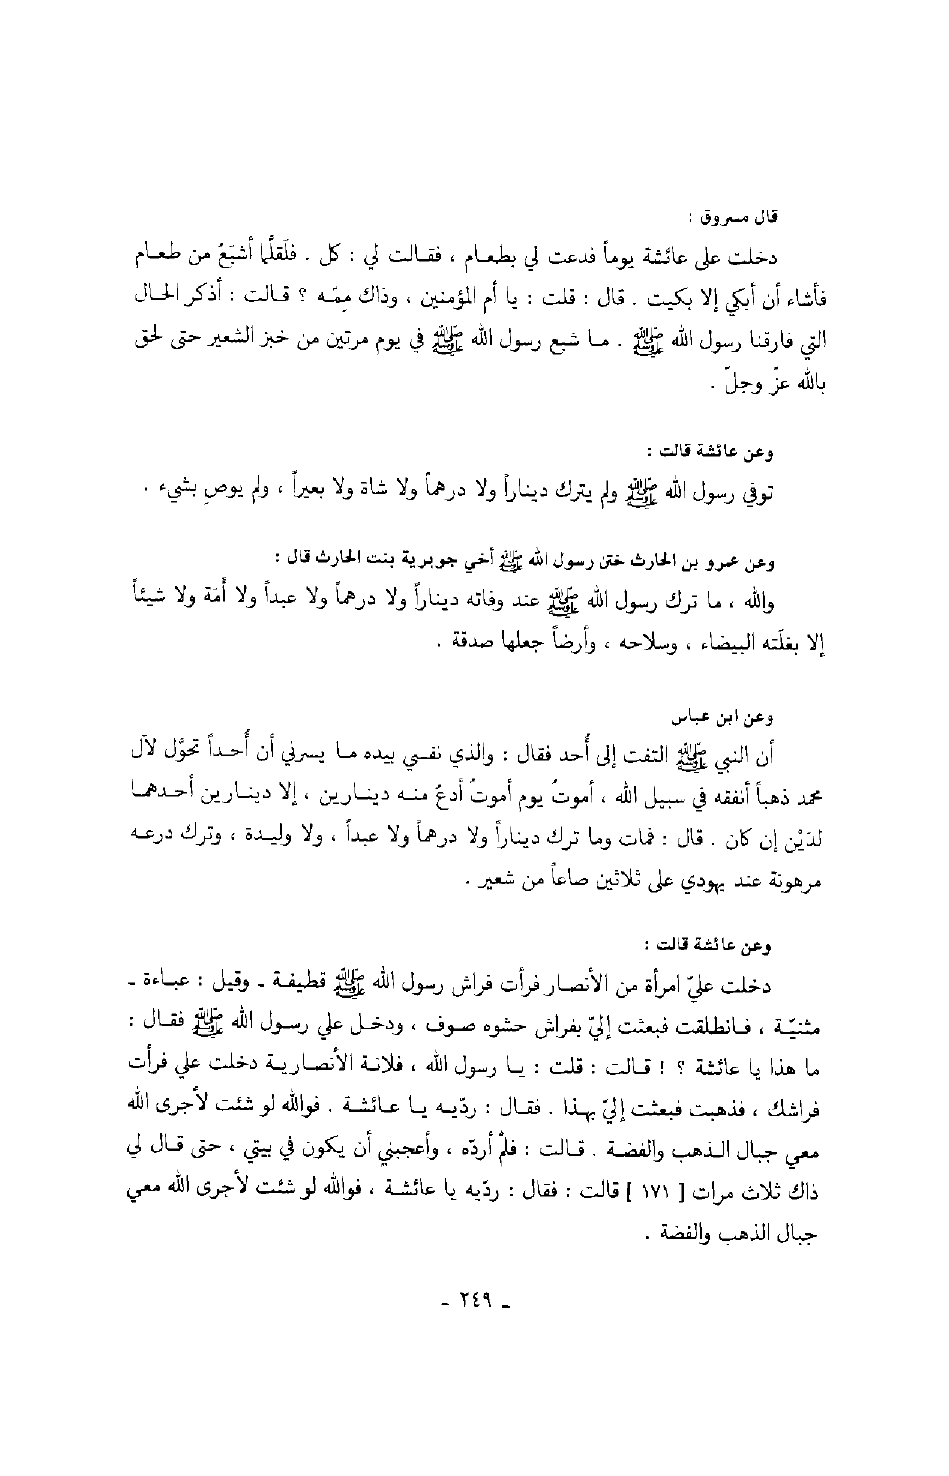 قال مسروق :
دخلت على عائشة يوماً فدعت لي بطعام ، فقالت لي : كل . فلَقلَّما أشبَعُ من طعام
فأشاء أن أبكي إلا بكيت . قال : قلت : يا أم المؤمنين ، وذاك ممّه ؟ قالت : أذكر الحال
التي فارقنا رسول الله ﷺ . ما شبع رسول الله ﷺ في يوم مرتين من خبز الشعير حتى لحق
بالله عزّ وجلّ .
وعن عائشة قالت :
توفي رسول الله ﷺ ولم يترك ديناراً ولا درهماً ولا شاة ولا بعيراً ، ولم يوصِ بشيء .
وعن عمرو بن الحارث ختن رسول الله ﷺ أخي جويرية بنت الحارث قال :
والله ، ما ترك رسول الله ﷺ عند وفاته ديناراً ولا درهماً ولا عبداً ولا أَمَة ولا شيئاً
إلا بغلَته البيضاء ، وسلاحه ، وأرضاً جعلها صدقة .
وعن ابن عباس
أن النبي ﷺ التفت إلى أُحد فقال : والذي نفسي بيده ما يسرني أن أُحداً تحوَّل لآل
محمد ذهباً أنفقه في سبيل الله ، أموتُ يوم أموتُ أدعُ منه دينارين ، إلا دينارين أحدهما
لدَيْن إن كان . قال : فمات وما ترك ديناراً ولا درهماً ولا عبداً ، ولا وليدة ، وترك درعه
مرهونة عند يهودي على ثلاثين صاعاً من شعير .
وعن عائشة قالت :
دخلت عليّ امرأة من الأنصار فرأت فراش رسول الله ﷺ قطيفة ـ وقيل : عباءة ـ
مثنيّة ، فانطلقت فبعثت إليّ بفراش حشوه صوف ، ودخل علي رسول الله ﷺ فقال :
ما هذا يا عائشة ؟ ! قالت : قلت : يا رسول الله ، فلانة الأنصارية دخلت علي فرأت
فراشك ، فذهبت فبعثت إليّ بهذا . فقال : ردّيه يا عائشة . فوالله لو شئت لأجرى الله
معي جبال الذهب والفضة . قالت : فلم أردّه ، وأعجبني أن يكون في بيتي ، حتى قال لي
ذاك ثلاث مرات [ ١٧١ ] قالت : فقال : ردّيه يا عائشة ، فوالله لو شئت لأجرى الله معي
جبال الذهب والفضة .
ـ ٢٤٩ ـ